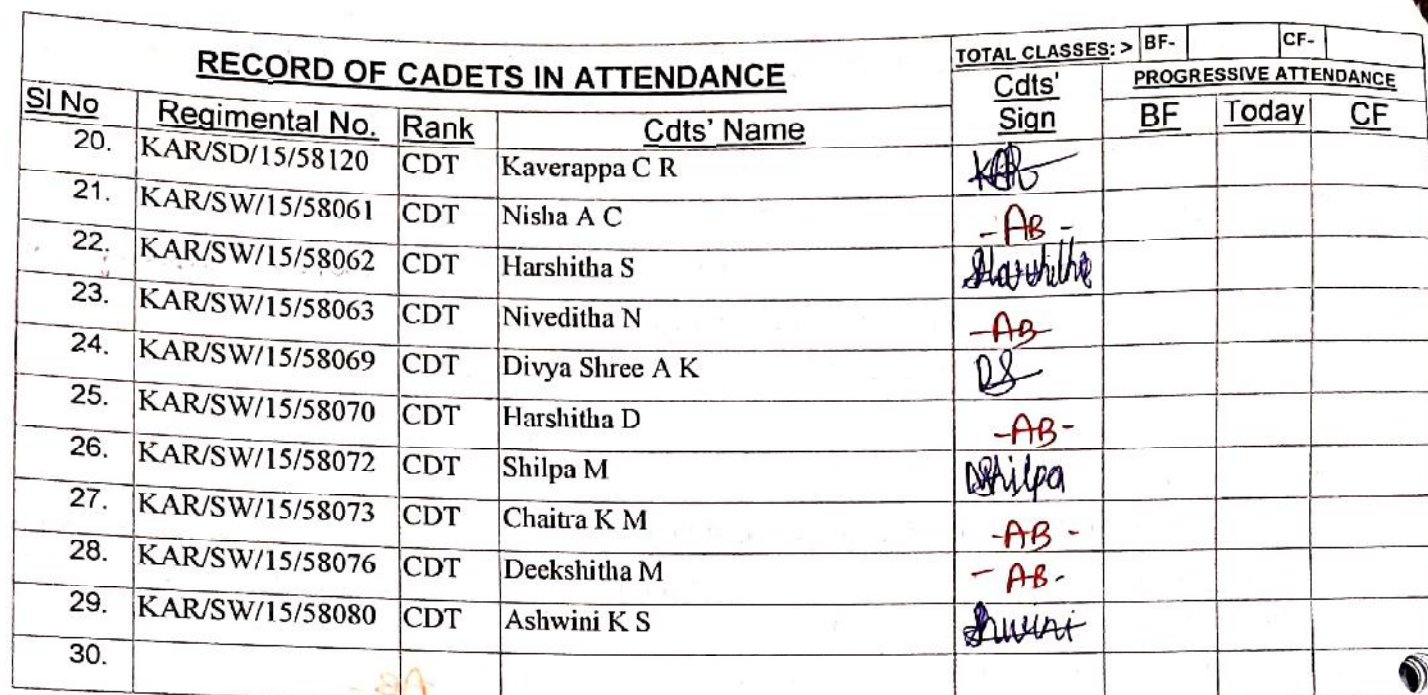 RECORD OF CADETS IN ATTENDANCE
TOTAL CLASSES: > BF- CF-
Cdts' Sign
PROGRESSIVE ATTENDANCE
Sl No Regimental No. Rank Cdts' Name BF Today CF
20. KAR/SD/15/58120 CDT Kaverappa C R
21. KAR/SW/15/58061 CDT Nisha A C -AB-
22. KAR/SW/15/58062 CDT Harshitha S Harshitha
23. KAR/SW/15/58063 CDT Niveditha N -AB-
24. KAR/SW/15/58069 CDT Divya Shree A K DS
25. KAR/SW/15/58070 CDT Harshitha D -AB-
26. KAR/SW/15/58072 CDT Shilpa M Shilpa
27. KAR/SW/15/58073 CDT Chaitra K M -AB-
28. KAR/SW/15/58076 CDT Deekshitha M -AB-
29. KAR/SW/15/58080 CDT Ashwini K S
30.